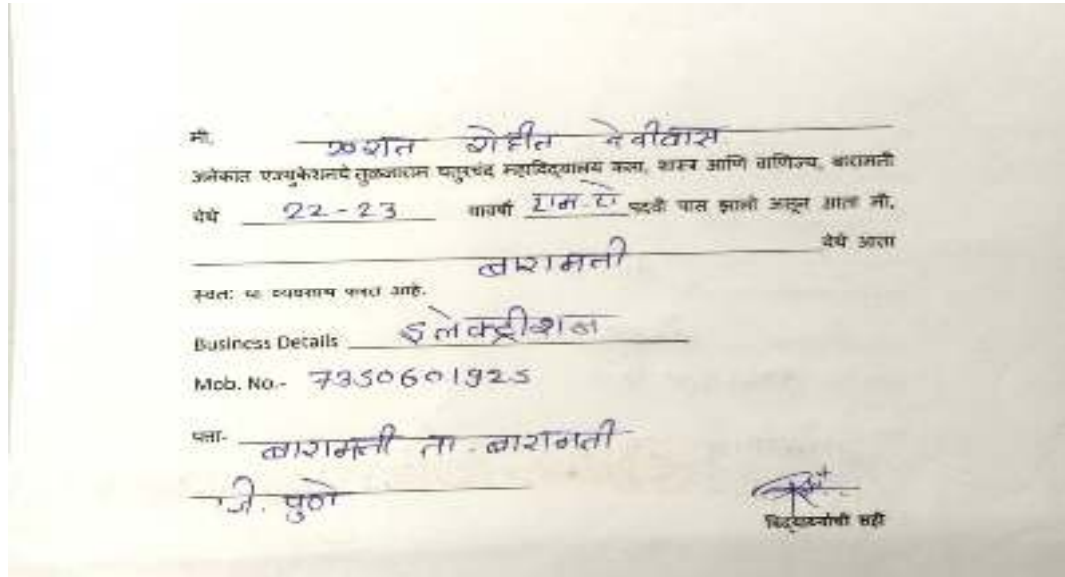 मी, रोहीत देवीदास
अनेकांत एज्युकेशनचे तुळजाराम चतुरचंद महाविद्यालय कला, शास्त्र आणि वाणिज्य, बारामती
येथे 22-23 यावर्षी एम.ए पदवी पास झालो असून आता मी,
बारामती येथे आता
स्वत: चा व्यवसाय करत आहे.
Business Details इलेक्ट्रीशन
Mob. No.- 7350601925
पत्ता- बारामती ता. बारामती
जि. पुणे
विद्यार्थ्याची सही